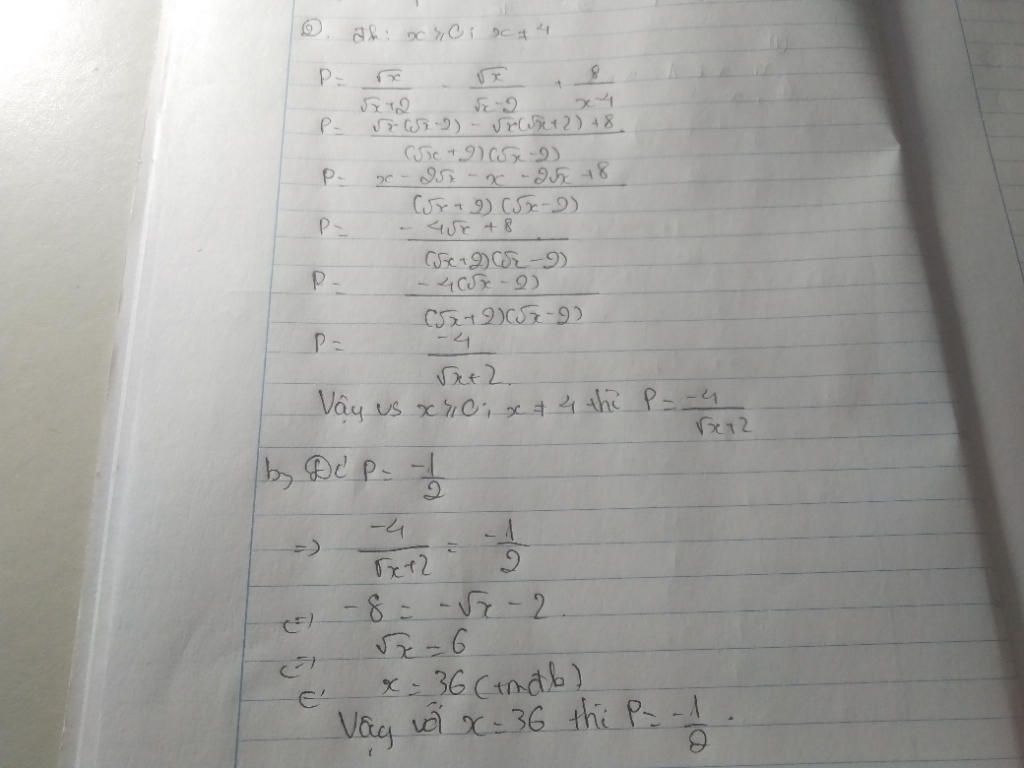 ②. đk: x ≥ 0; x ≠ 4
P = √x/(√x+2) - √x/(√x-2) + 8/(x-4)
P = (√x(√x-2) - √x(√x+2) + 8)/((√x+2)(√x-2))
P = (x - 2√x - x - 2√x + 8)/((√x+2)(√x-2))
P = (-4√x + 8)/((√x+2)(√x-2))
P = (-4(√x-2))/((√x+2)(√x-2))
P = -4/(√x+2).
Vậy vs x ≥ 0; x ≠ 4 thì P = -4/(√x+2)
b, Để P = -1/2
=> -4/(√x+2) = -1/2
<=> -8 = -√x - 2.
<=> √x = 6
<=> x = 36 (tmđk)
Vậy với x = 36 thì P = -1/2.